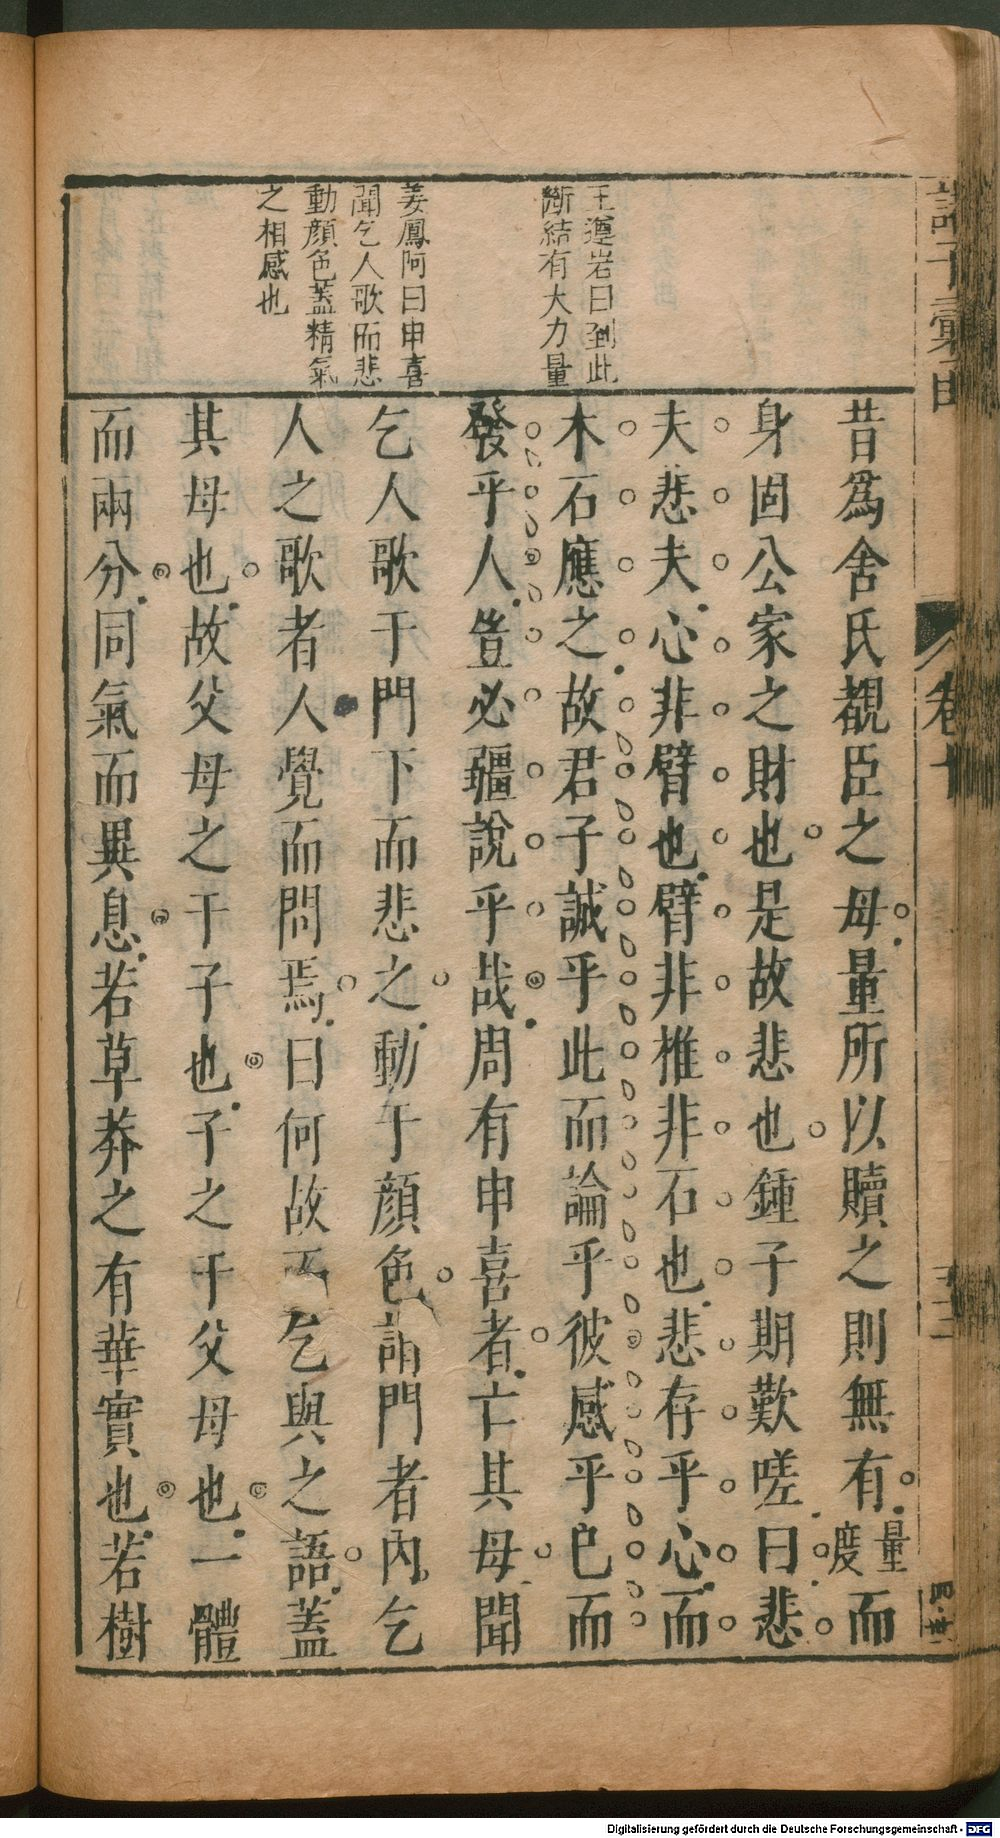 王遵岩曰到此
斷結有大力量
姜鳳阿曰申喜
聞乞人歌而悲
動顔色蓋精氣
之相感也
昔爲舍氏覩臣之母量所以贖之則無有量度而
身固公家之財也是故悲也鍾子期歎嗟曰悲
夫悲夫心非臂也臂非椎非石也悲存乎心而
木石應之故君子誠乎此而論乎彼感乎已而
發乎人豈必疆說乎哉周有申喜者亡其母聞
乞人歌于門下而悲之動于顔色謂門者内乞
人之歌者人覺而問焉曰何故而乞與之語蓋
其母也故父母之于子也子之于父母也一體
而兩分同氣而異息若草莽之有華實也若樹
卷十
Digitalisierung gefördert durch die Deutsche Forschungsgemeinschaft - DFG